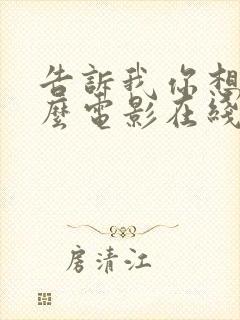 告訴我 你想
麼電影在綫
房清江